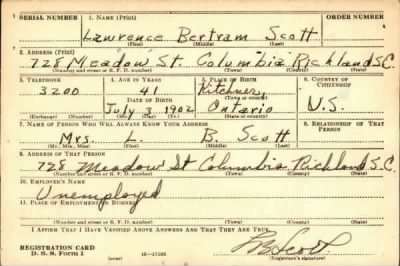 SERIAL NUMBER 1. NAME (Print) ORDER NUMBER
Lawrence Bertram Scott
(First) (Middle) (Last)
2. ADDRESS (Print)
728 Meadow St. Columbia Richland S.C.
(Number and street or R. F. D. number) (Town) (County) (State)
3. TELEPHONE 4. AGE IN YEARS 5. PLACE OF BIRTH 6. COUNTRY OF CITIZENSHIP
3200 41 Kitchner U.S.
DATE OF BIRTH (Town or county)
July 3 1902 Ontario
(Exchange) (Number) (Mo.) (Day) (Yr.) (State or country)
7. NAME OF PERSON WHO WILL ALWAYS KNOW YOUR ADDRESS 8. RELATIONSHIP OF THAT PERSON
Mrs. L. B. Scott
(Mr., Mrs., Miss) (First) (Middle) (Last)
9. ADDRESS OF THAT PERSON
728 Meadow St Columbia Richland S.C.
(Number and street or R. F. D. number) (Town) (County) (State)
10. EMPLOYER'S NAME
Unemployed
11. PLACE OF EMPLOYMENT OR BUSINESS
(Number and street or R. F. D. number) (Town) (County) (State)
I AFFIRM THAT I HAVE VERIFIED ABOVE ANSWERS AND THAT THEY ARE TRUE.
REGISTRATION CARD
D. S. S. Form 1 (over) 16—17105 (Registrant's signature)
L B Scott